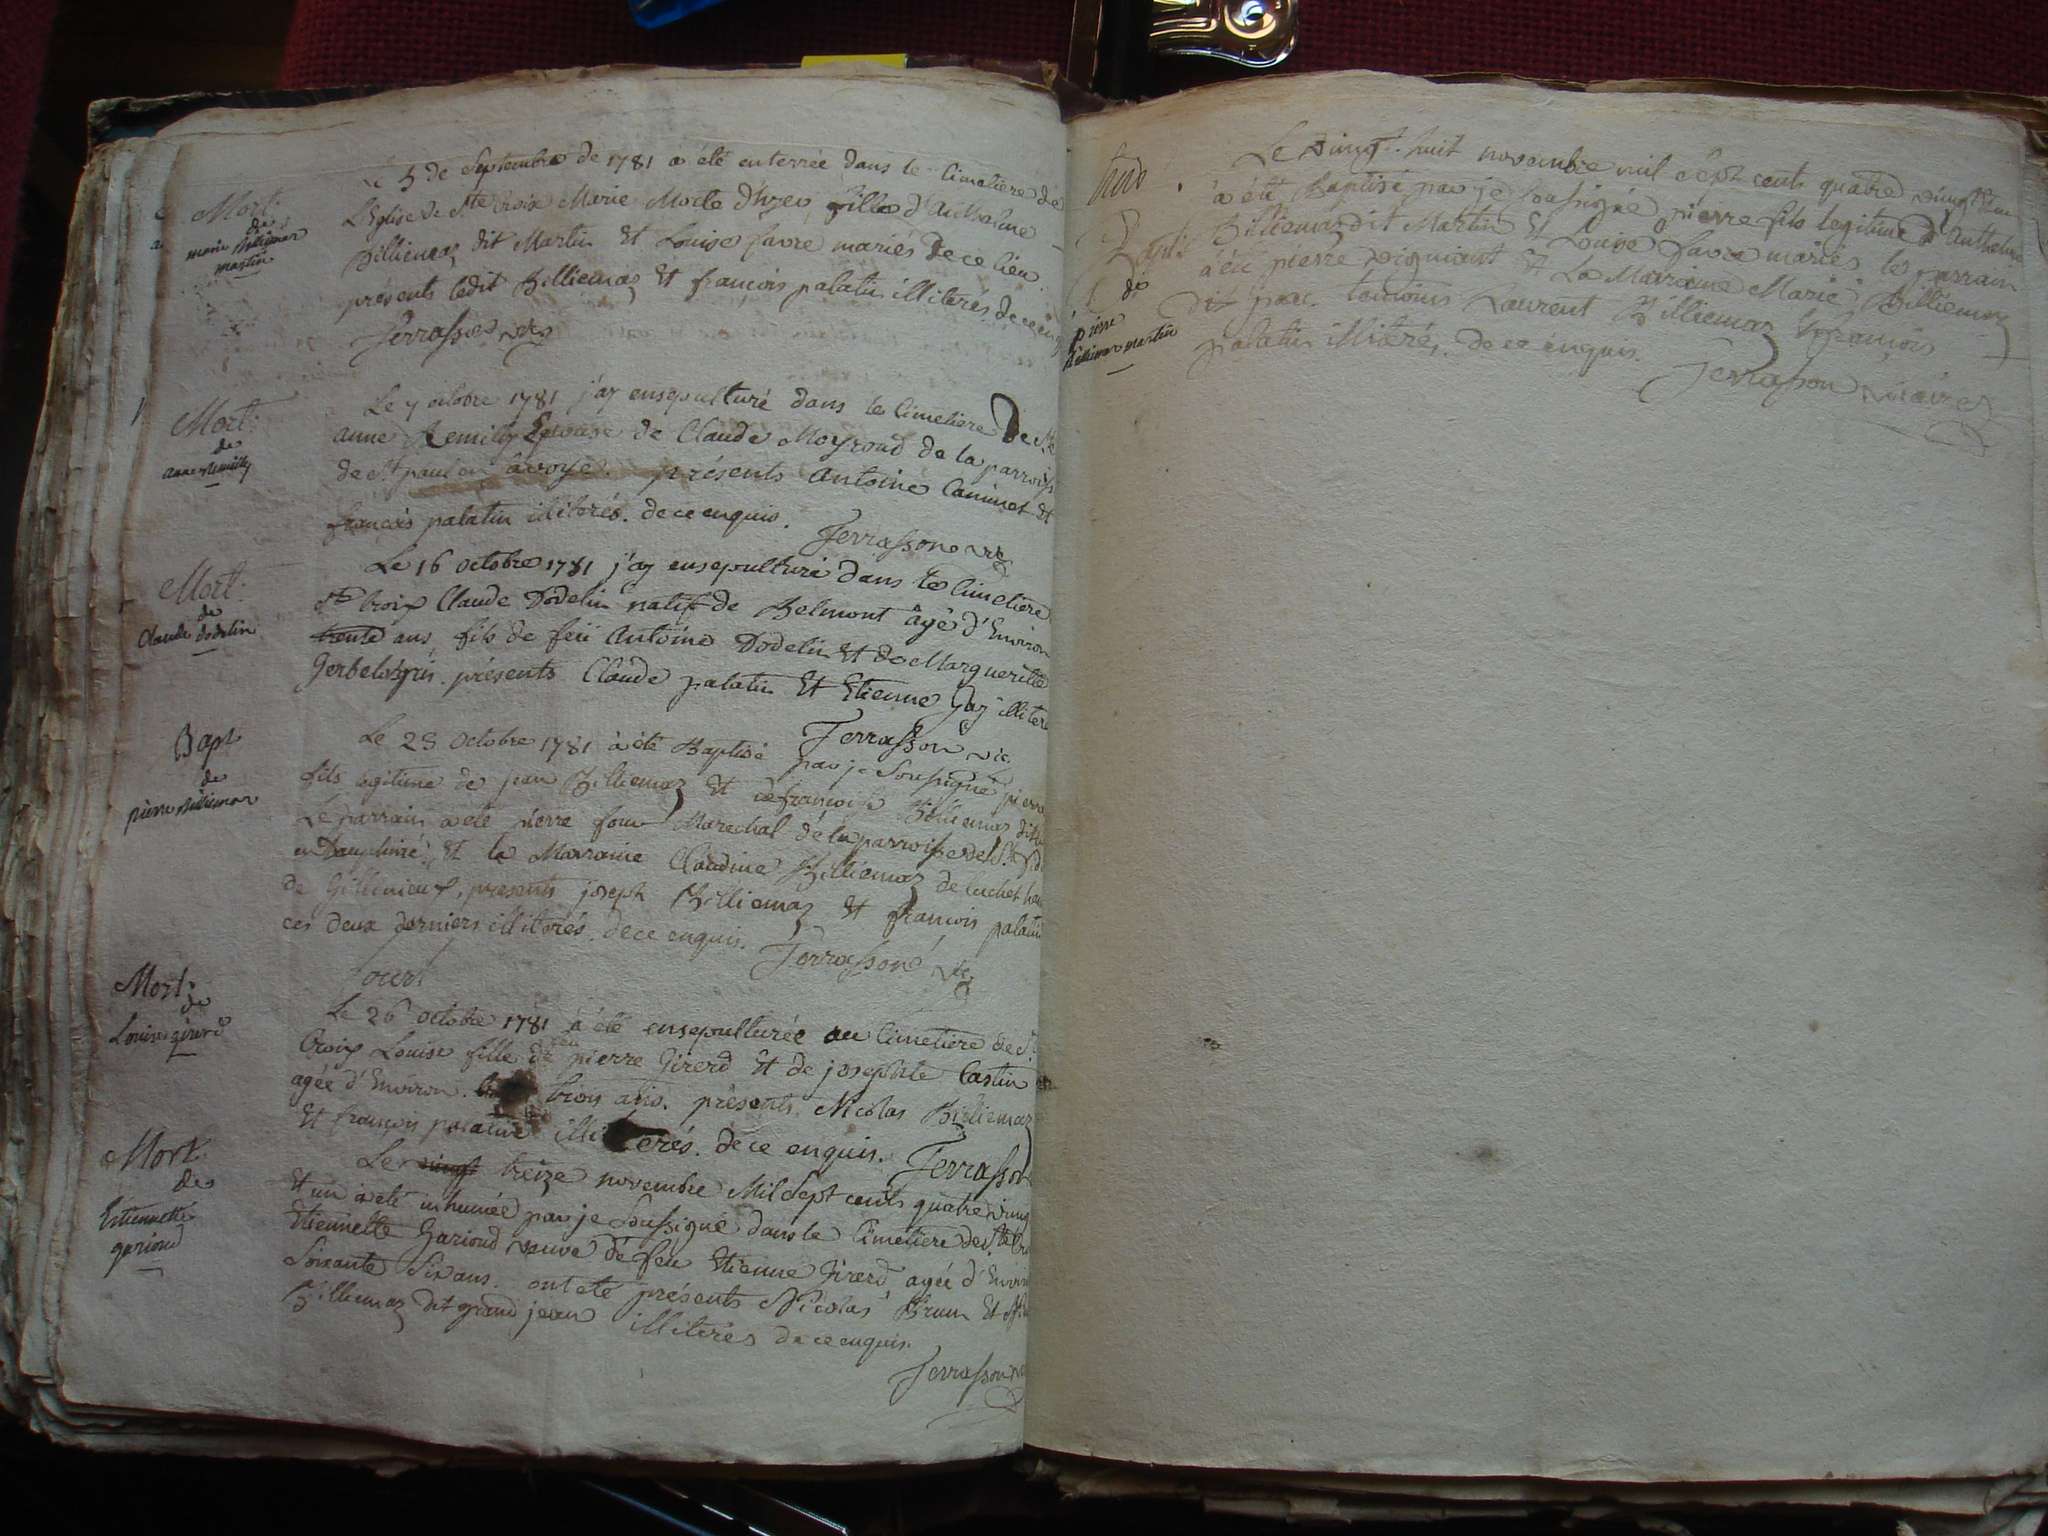 Mort:
de
marie Billiemaz
martin
Le 5 de Septembre de 1781 a été enterrée dans le Cimetiere de
L'Eglise de Ste Croix Marie Morte d'hyer, fille d'Anthelme
Billiemaz dit Martin Et Louise favre mariés de ce lieu
présents ledit Billiemaz Et francois palatin illiteres de ce enquis
Terrasson vic
Mort:
de
anne Remilly
Le 7 octobre 1781 j'ay ensepulturé dans le Cimetiere de Ste
anne Remilly Epouse de Claude Moyroud de la parroisse
de St paul en savoye. présents Antoine Caminet Et
francois palatin illiterés. de ce enquis.
Terrasson vic
Mort:
de
Claude dodelin
Le 16 octobre 1781 j'ay ensepulturé dans le Cimetiere
Ste Croix Claude Dodelin natif de Belmont âgé d'Environ
trente ans, fils de feü Antoine Dodelin Et de Marguerite
présents Claude palatin Et Etienne Gay illiteré
Terrasson vic
Bapt
de
pierre Billiemaz
Le 23 Octobre 1781 a été Baptisé par je Soussigné pierre
fils legitime de jean Billiemaz Et de françoise Billiemaz
Le parrain a été pierre Marechal de la parroisse de St
en Dauphiné, Et la Marraine Claudine Billiemaz de
de présents joseph Billiemaz Et françois palatin
ces deux derniers illiterés. de ce enquis.
Terrasson vic
Mort:
de
Louise girerd
Le 26 octobre 1781 a été ensepulturée au Cimetiere de Ste
Croix Louise fille de feu pierre Girerd Et de josephte Castin
agée d'Environ trois ans. présents Nicolas Billiemaz
Et françois palatin illiterés. de ce enquis. Terrasson
Mort
de
Etiennette
gariond
Le vingt treize novembre Mil Sept cents quatre vingt
Et un a été inhumée par je Soussigné dans le Cimetiere de Ste Croix
Etiennette Gariond veuve de feu Etienne Girerd agée d'Environ
Soixante Six ans. ont été présents Nicolas Brun Et
Billiemaz dit grand jean illiterés de ce enquis.
Terrasson vic
Bapt
de
pierre
Billiemaz martin
Le vingt-huit novembre mil sept cents quatre vingt Et un
a été Baptisé par je Soussigné pierre fils legitime d'Anthelme
Billiemaz dit Martin Et Louise favre mariés le parrain
a été pierre Et La Marraine Marie Billiemaz
temoins Laurent Billiemaz Et françois
palatin illiterés, de ce enquis.
Terrasson vicaire